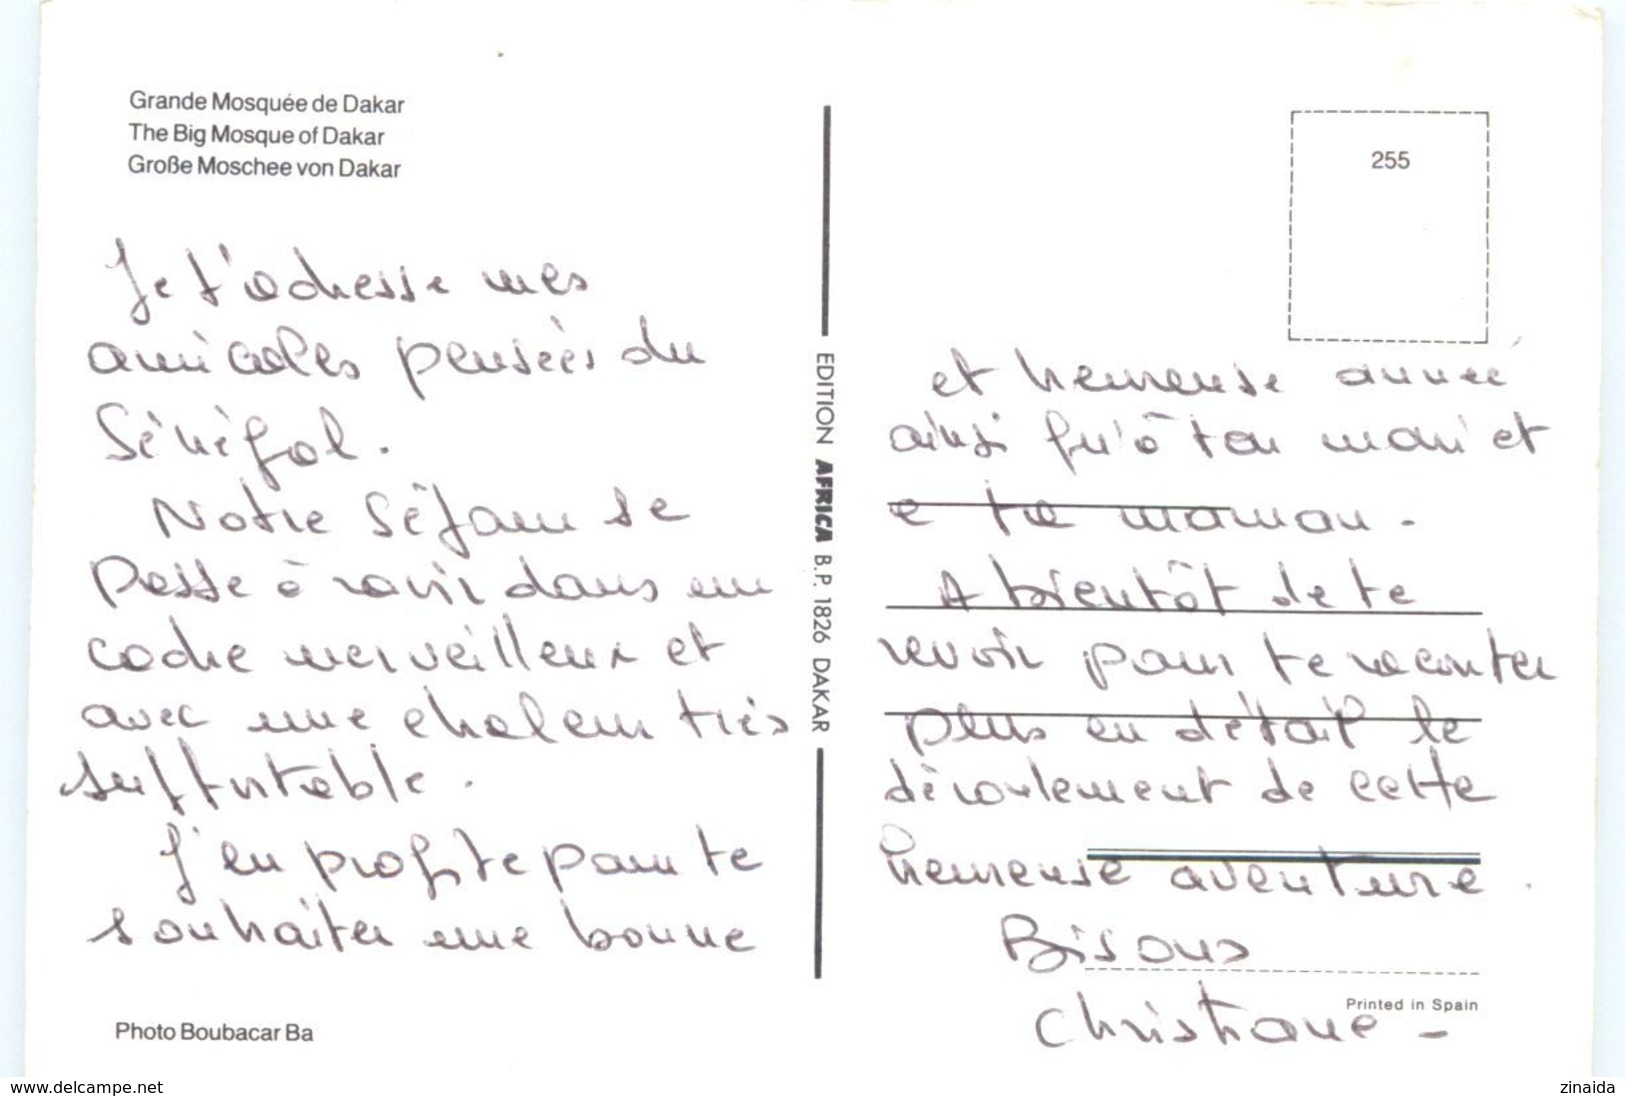 Grande Mosquée de Dakar
The Big Mosque of Dakar
Große Moschee von Dakar
Je t'adresse mes
amicales pensées du
Sénégal.
Notre séjour se
passe à ravir dans un
cadre merveilleux et
avec une chaleur très
supportable.
J'en profite pour te
souhaiter une bonne
Photo Boubacar Ba
EDITION AFRICA B.P. 1826 DAKAR
255
et heureuse année
ainsi qu'à ton mari et
à ta maman.
A bientôt de te
revoir pour te raconter
plus en détail le
déroulement de cette
heureuse aventure.
Bisous
Printed in Spain
Christiane -
www.delcampe.net
zinaida